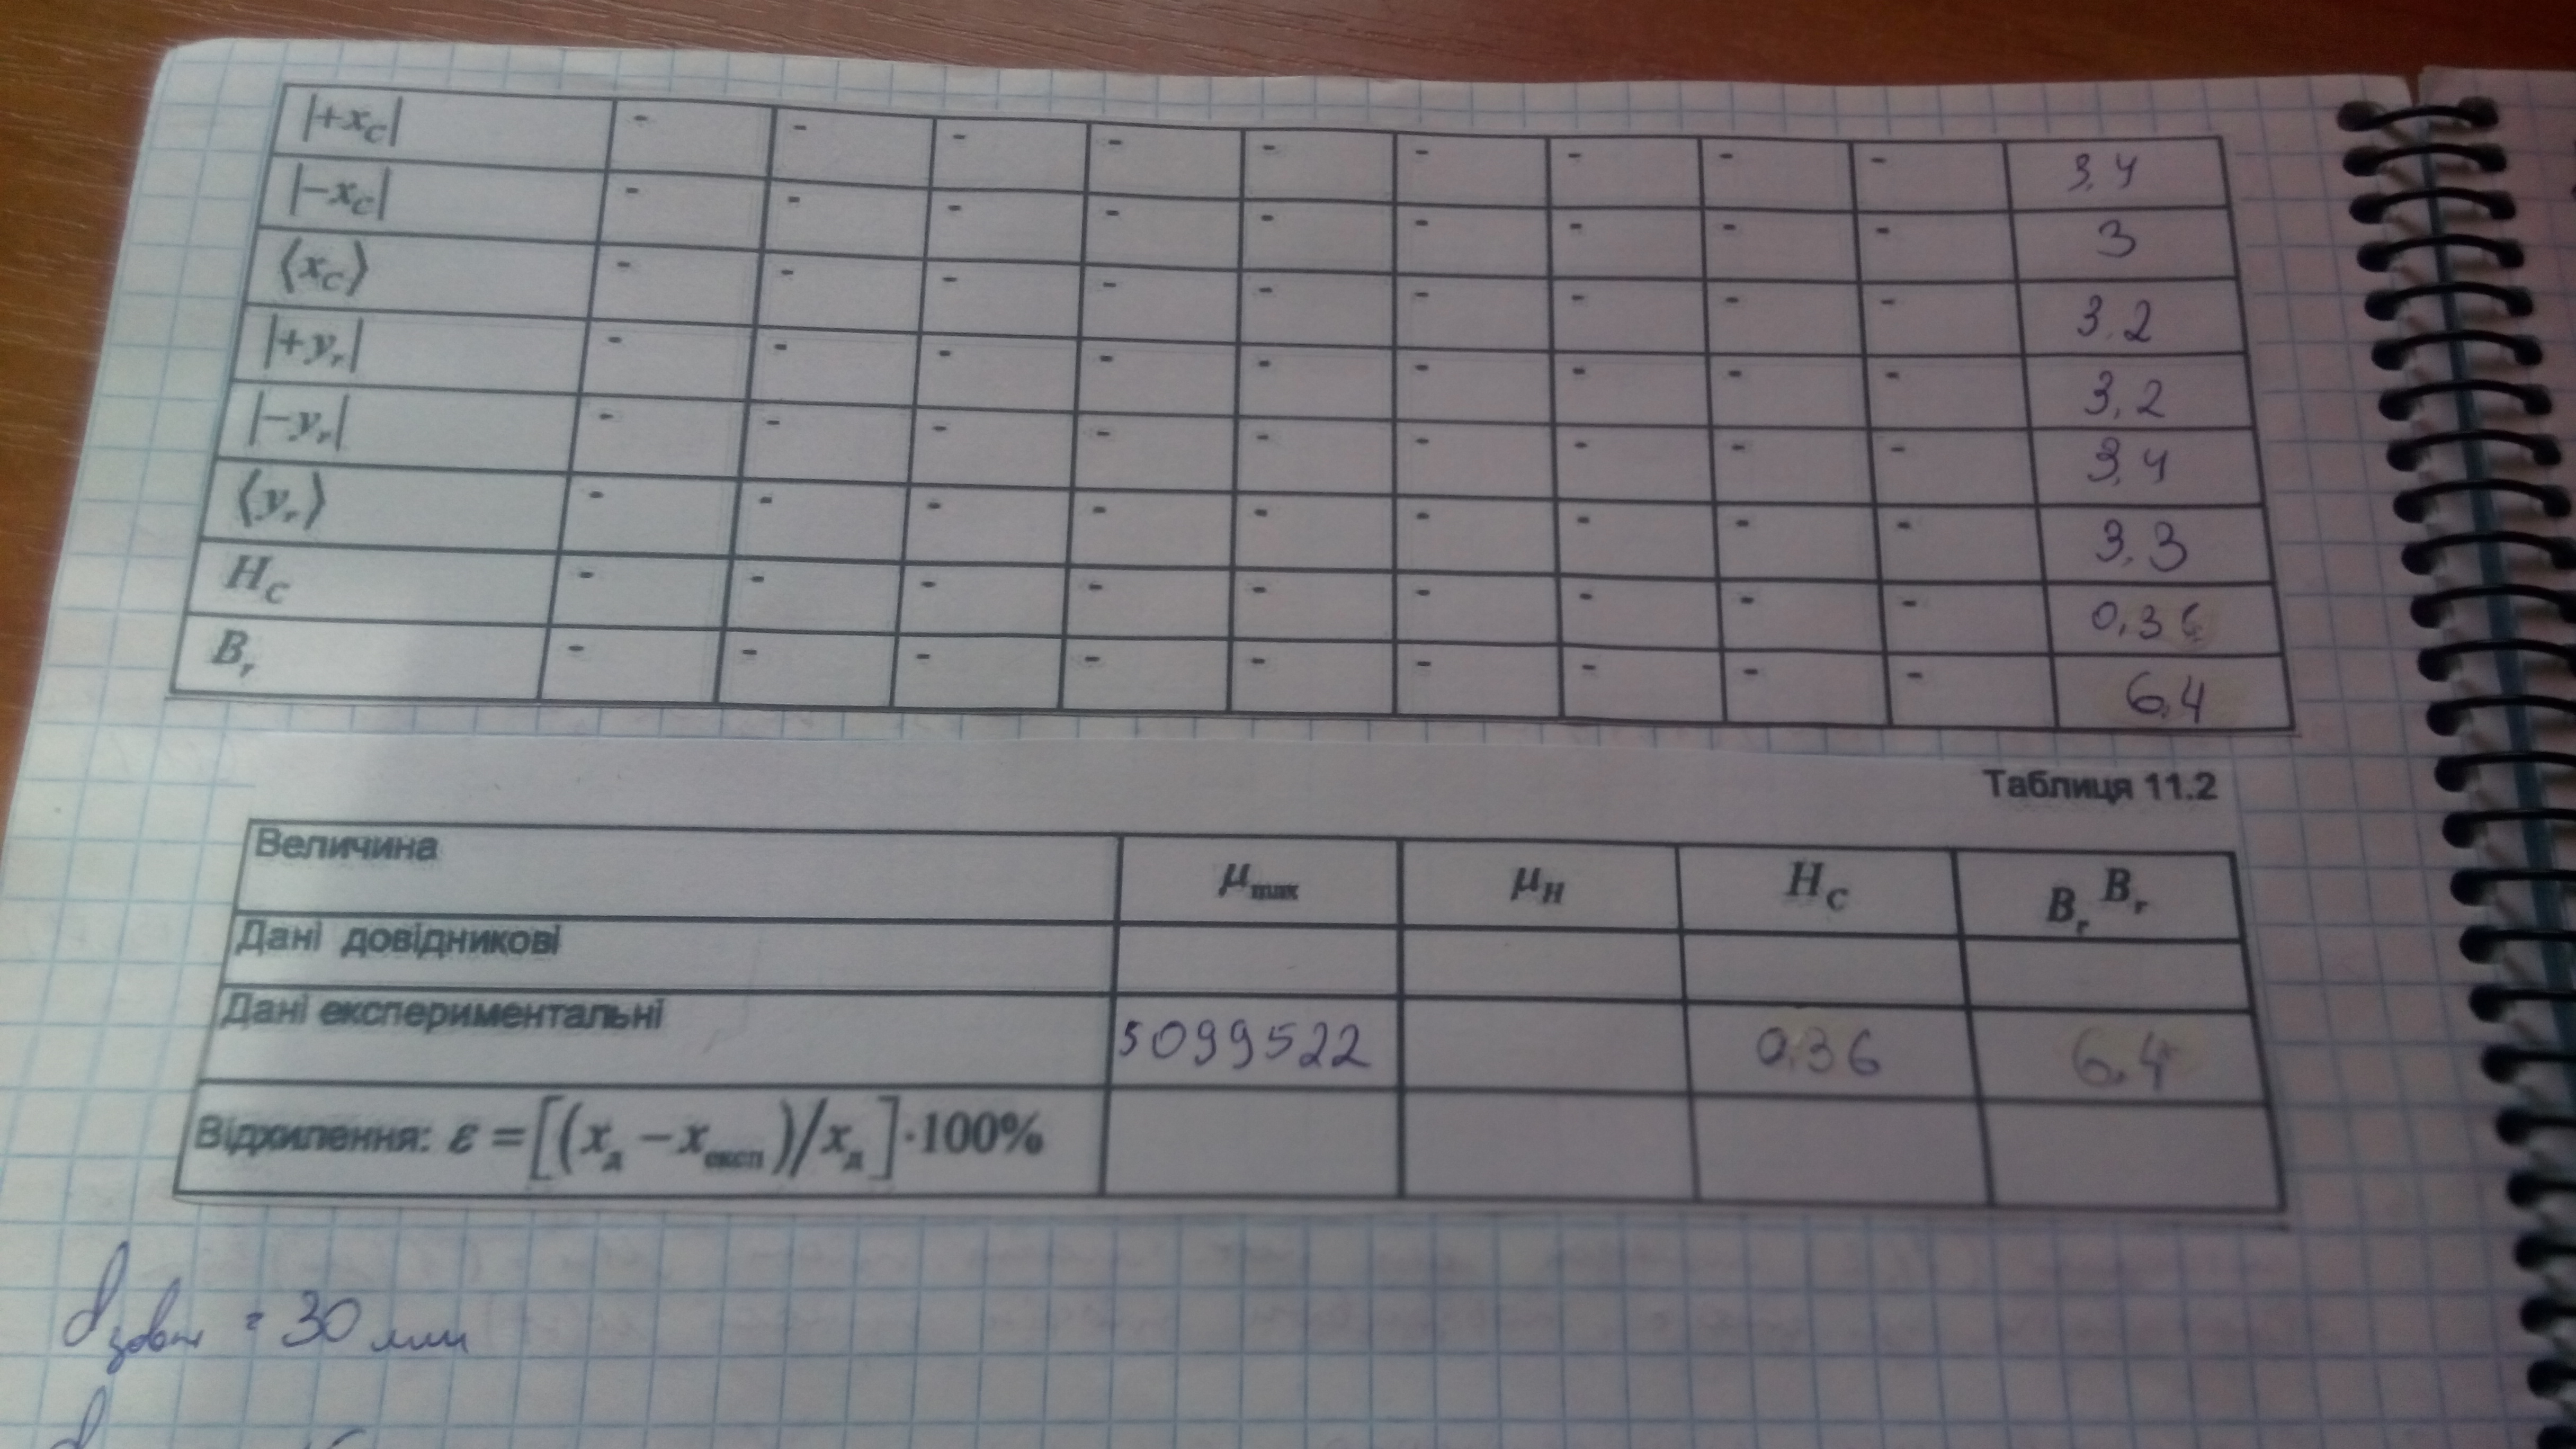 |+x_C| - - - - - - - - - 3,4
|−x_C| - - - - - - - - - 3
⟨x_C⟩ - - - - - - - - - 3,2
|+y_r| - - - - - - - - - 3,2
|−y_r| - - - - - - - - - 3,4
⟨y_r⟩ - - - - - - - - - 3,3
H_C - - - - - - - - - 0,36
B_r - - - - - - - - - 6,4
Таблиця 11.2
Величина μ_max μ_H H_C B_r B_r
Дані довідникові
Дані експериментальні 5099522 0,36 6,4
Відхилення: ε = [(x_д − x_експ)/x_д]·100%
d_зовн = 30 мм